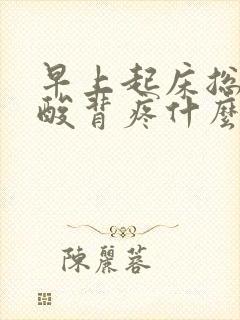 早上起床総
酸背疼什麼
陳麗蓉